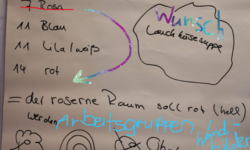 7 Rosa
11 Blau
11 Lila/weiß
14 rot
Wunsch
Lauchkäsesuppe
= der roserne Raum soll rot (hell)
werden
Arbeitsgruppen